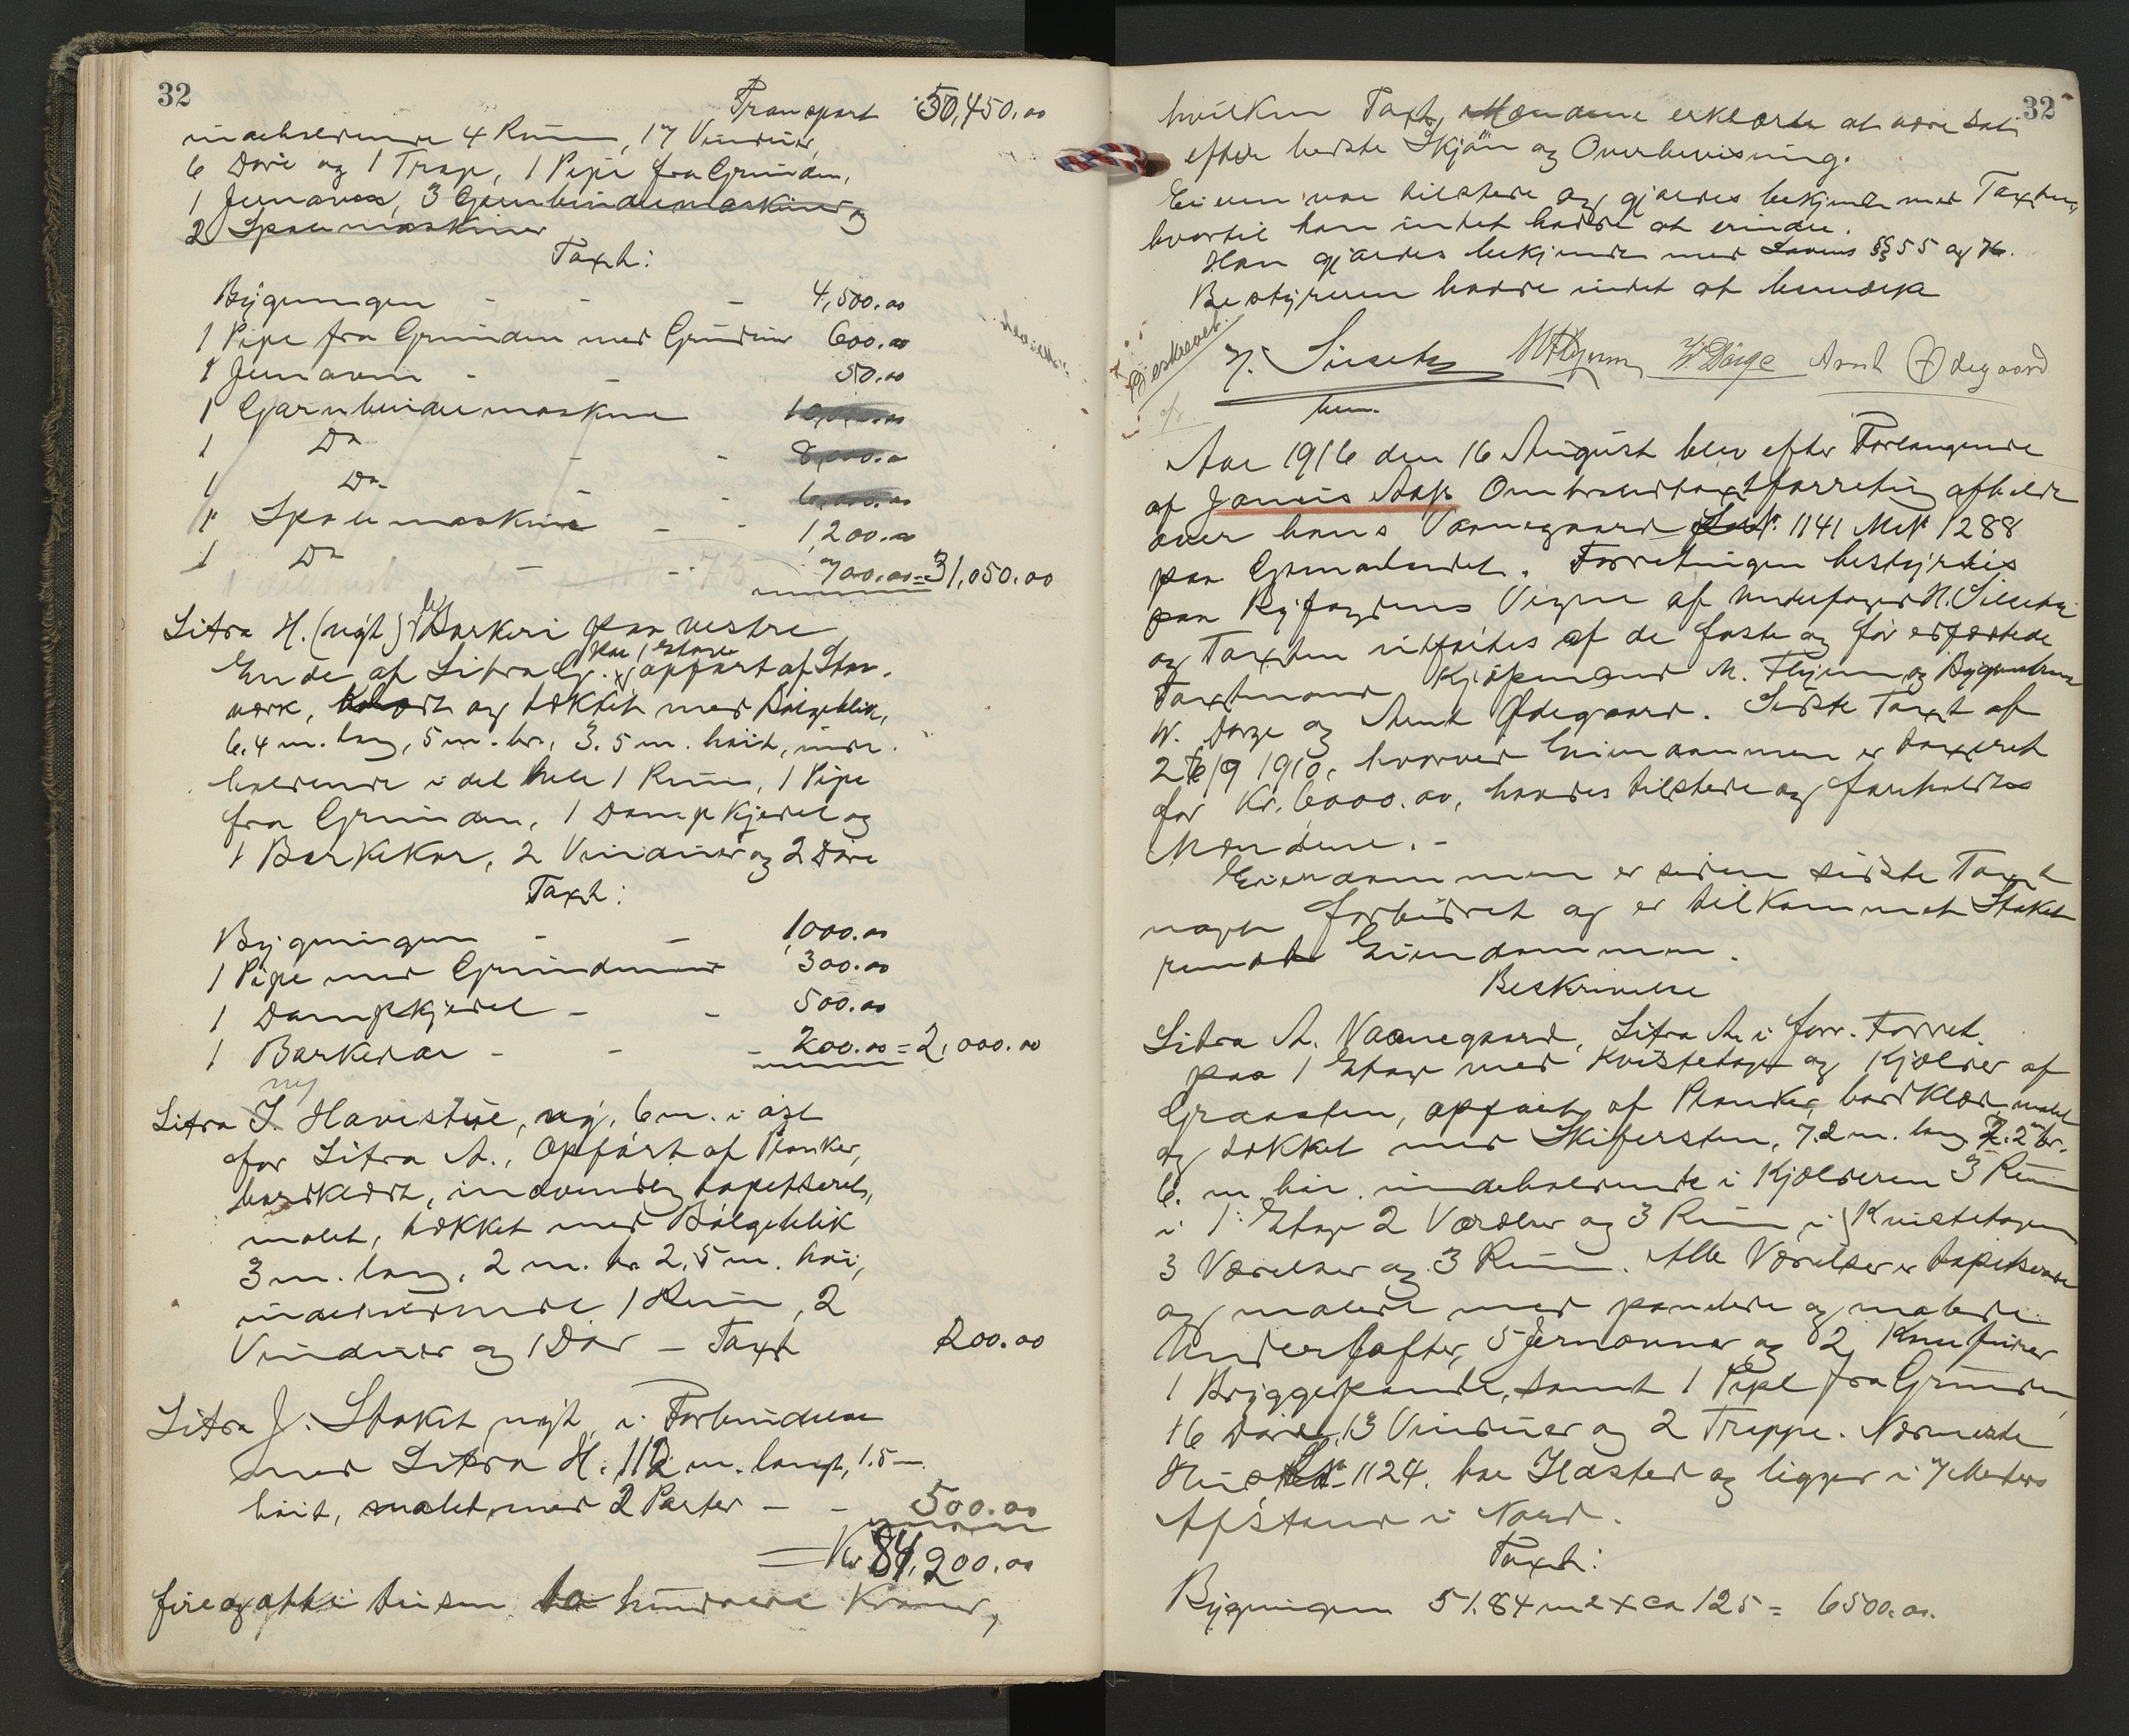 32
Transport 50,450.00
indeholdende 4 Rum, 17 Vinduer,
6 Döre og 1 Trap, 1 Pipe fra Grunden,
1 Jernovn, 3 Garnbindemaskiner og
2 Spolemaskiner
Taxt:
Bygningen - - - 4,500.00
1 Pipe fra Grunden med Grundmur 600.00
1 Jernovn - - 50.00
1 Garnbindemaskine 10,000.00
1 Do - - 8,000.00
1 Do - - 6,000.00
1 Spolemaskine - - 1,200.00
1 Do - - 700.00 = 31,050.00
Litra H. (nyt) Barkeri paa vestre
Ende af Litra G. opfört af Stav-
værk, og tækket med Bölgeblik,
6.4 m. lang, 5 m. br., 3.5 m. höit, inde-
holdende i det hele 1 Rum, 1 Pipe
fra Grunden, 1 Dampkjedel og
1 Barkekar, 2 Vinduer og 2 Döre
Taxt:
Bygningen - - 1,000.00
1 Pipe med Grundmur 300.00
1 Dampkjedel - - 500.00
1 Barkekar - - - 200.00 = 2,000.00
ny
Litra I. Havestue, ny, 6 m. i öst
for Litra A., Opfört af Planker,
bordklædt, indvendig tapetseret,
malet, tækket med Bölgeblik
3 m. lang, 2 m. br. 2.5 m. höi,
indeholdende 1 Rum, 2
Vinduer og 1 Dör - Taxt 200.00
Litra J. Staket nyt, i Forbindelse
med Litra H. 112 m. langt, 1.5 m.
höit, malet, med 2 Porter - - 500.00
= Kr. 84,200.00
fireogotti tusen to hundrede Kroner,
32
hvilken Taxt Mændene erklærte at være sat
efter bedste Skjön og Overbevisning.
Eieren var tilstede og gjordes bekjendt med Taxten,
hvortil han intet havde at erindre.
Han gjordes bekjendt med Lovens §§ 55 og 76.
Bestyreren havde intet at bemærke
Beskrevet.
H. Sieseby M. Flyum W. Dörge Arnt Ødegaard
Aar 1916 den 16 August blev efter Forlangende
af Jonsis Aas Ombrandtaxtforretning afholdt
over hans Vaanegaard 1141 M.N. 1288
paa Grønlandet. Forretningen bestyrtes
paa Byfogdens Vegne af H. Sieseby
og Taxten udførtes af de faste og för edfæstede
Taxtmænd Kjöpmand M. Flyum og Bygmestrene
W. Dørge og Arnt Ødegaard. Sidste Taxt af
26/9 1910, hvorved Eiendommen er taxeret
for Kr. 6000.00, havdes tilstede og foreholdtes
Mændene. -
Eiendommen er siden sidste Taxt
noget forbedret og er tilkommet Staket
rundt Eiendommen.
Beskrivelse
Litra A. Vaanegaard, Litra A. i forr. Forret.
paa 1 Etage med Kvistetage og Kjælder af
Graasten, opfört af Planker, bordklædt, malet
og tækket med Skifersten, 7.2 m. lang 7.2 m br.
6. m. höi, indeholdende i Kjælderen 3 Rum
i 1. Etage 2 Værelser og 3 Rum, i Kvistetagen
3 Værelser og 3 Rum. Alle Værelser er tapetserede
og malede med panelede og malede
Underlofter, 5 Jernovner og 2 Komfurer
1 Bryggepande, samt 1 Pipe fra Grunden,
16 Döre, 13 Vinduer og 2 Trappe. Nærmeste
Hus 1124. har Ildsted og ligger i 7 Meters
Afstand i Nord.
Taxt:
Bygningen 51.84 m2 x ca 125 = 6500.00.